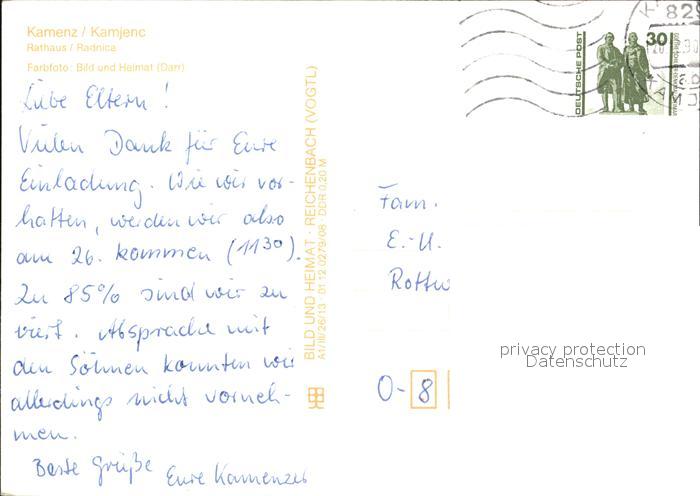 Kamenz / Kamjenc
Rathaus / Radnica
Farbfoto: Bild und Heimat (Darr)
Liebe Eltern!
Vielen Dank für Eure
Einladung. Wie wir vor-
hatten, werden wir also
am 26. kommen (11³⁰).
Zu 85% sind wir zu
viert. Absprache mit
den Söhnen konnten wir
allerdings nicht vorneh-
men.
Beste Grüße Eure Kamenzer
BILD UND HEIMAT · REICHENBACH (VOGTL)
A1/III/26/13 01 12 0279/08 DDR 0,20 M
DEUTSCHE POST
30
829
Fam.
E.-U.
Rottw
O-8
privacy protection
Datenschutz